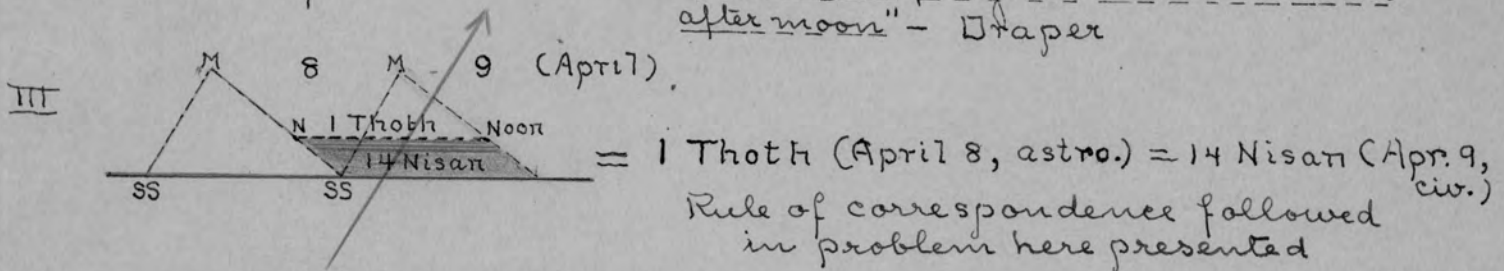 after moon" - Draper
III
M 8 M 9 (April)
N 1 Thoth Noon
14 Nisan
SS SS
= 1 Thoth (April 8, astro.) = 14 Nisan (Apr. 9, civ.)
Rule of correspondence followed
in problem here presented